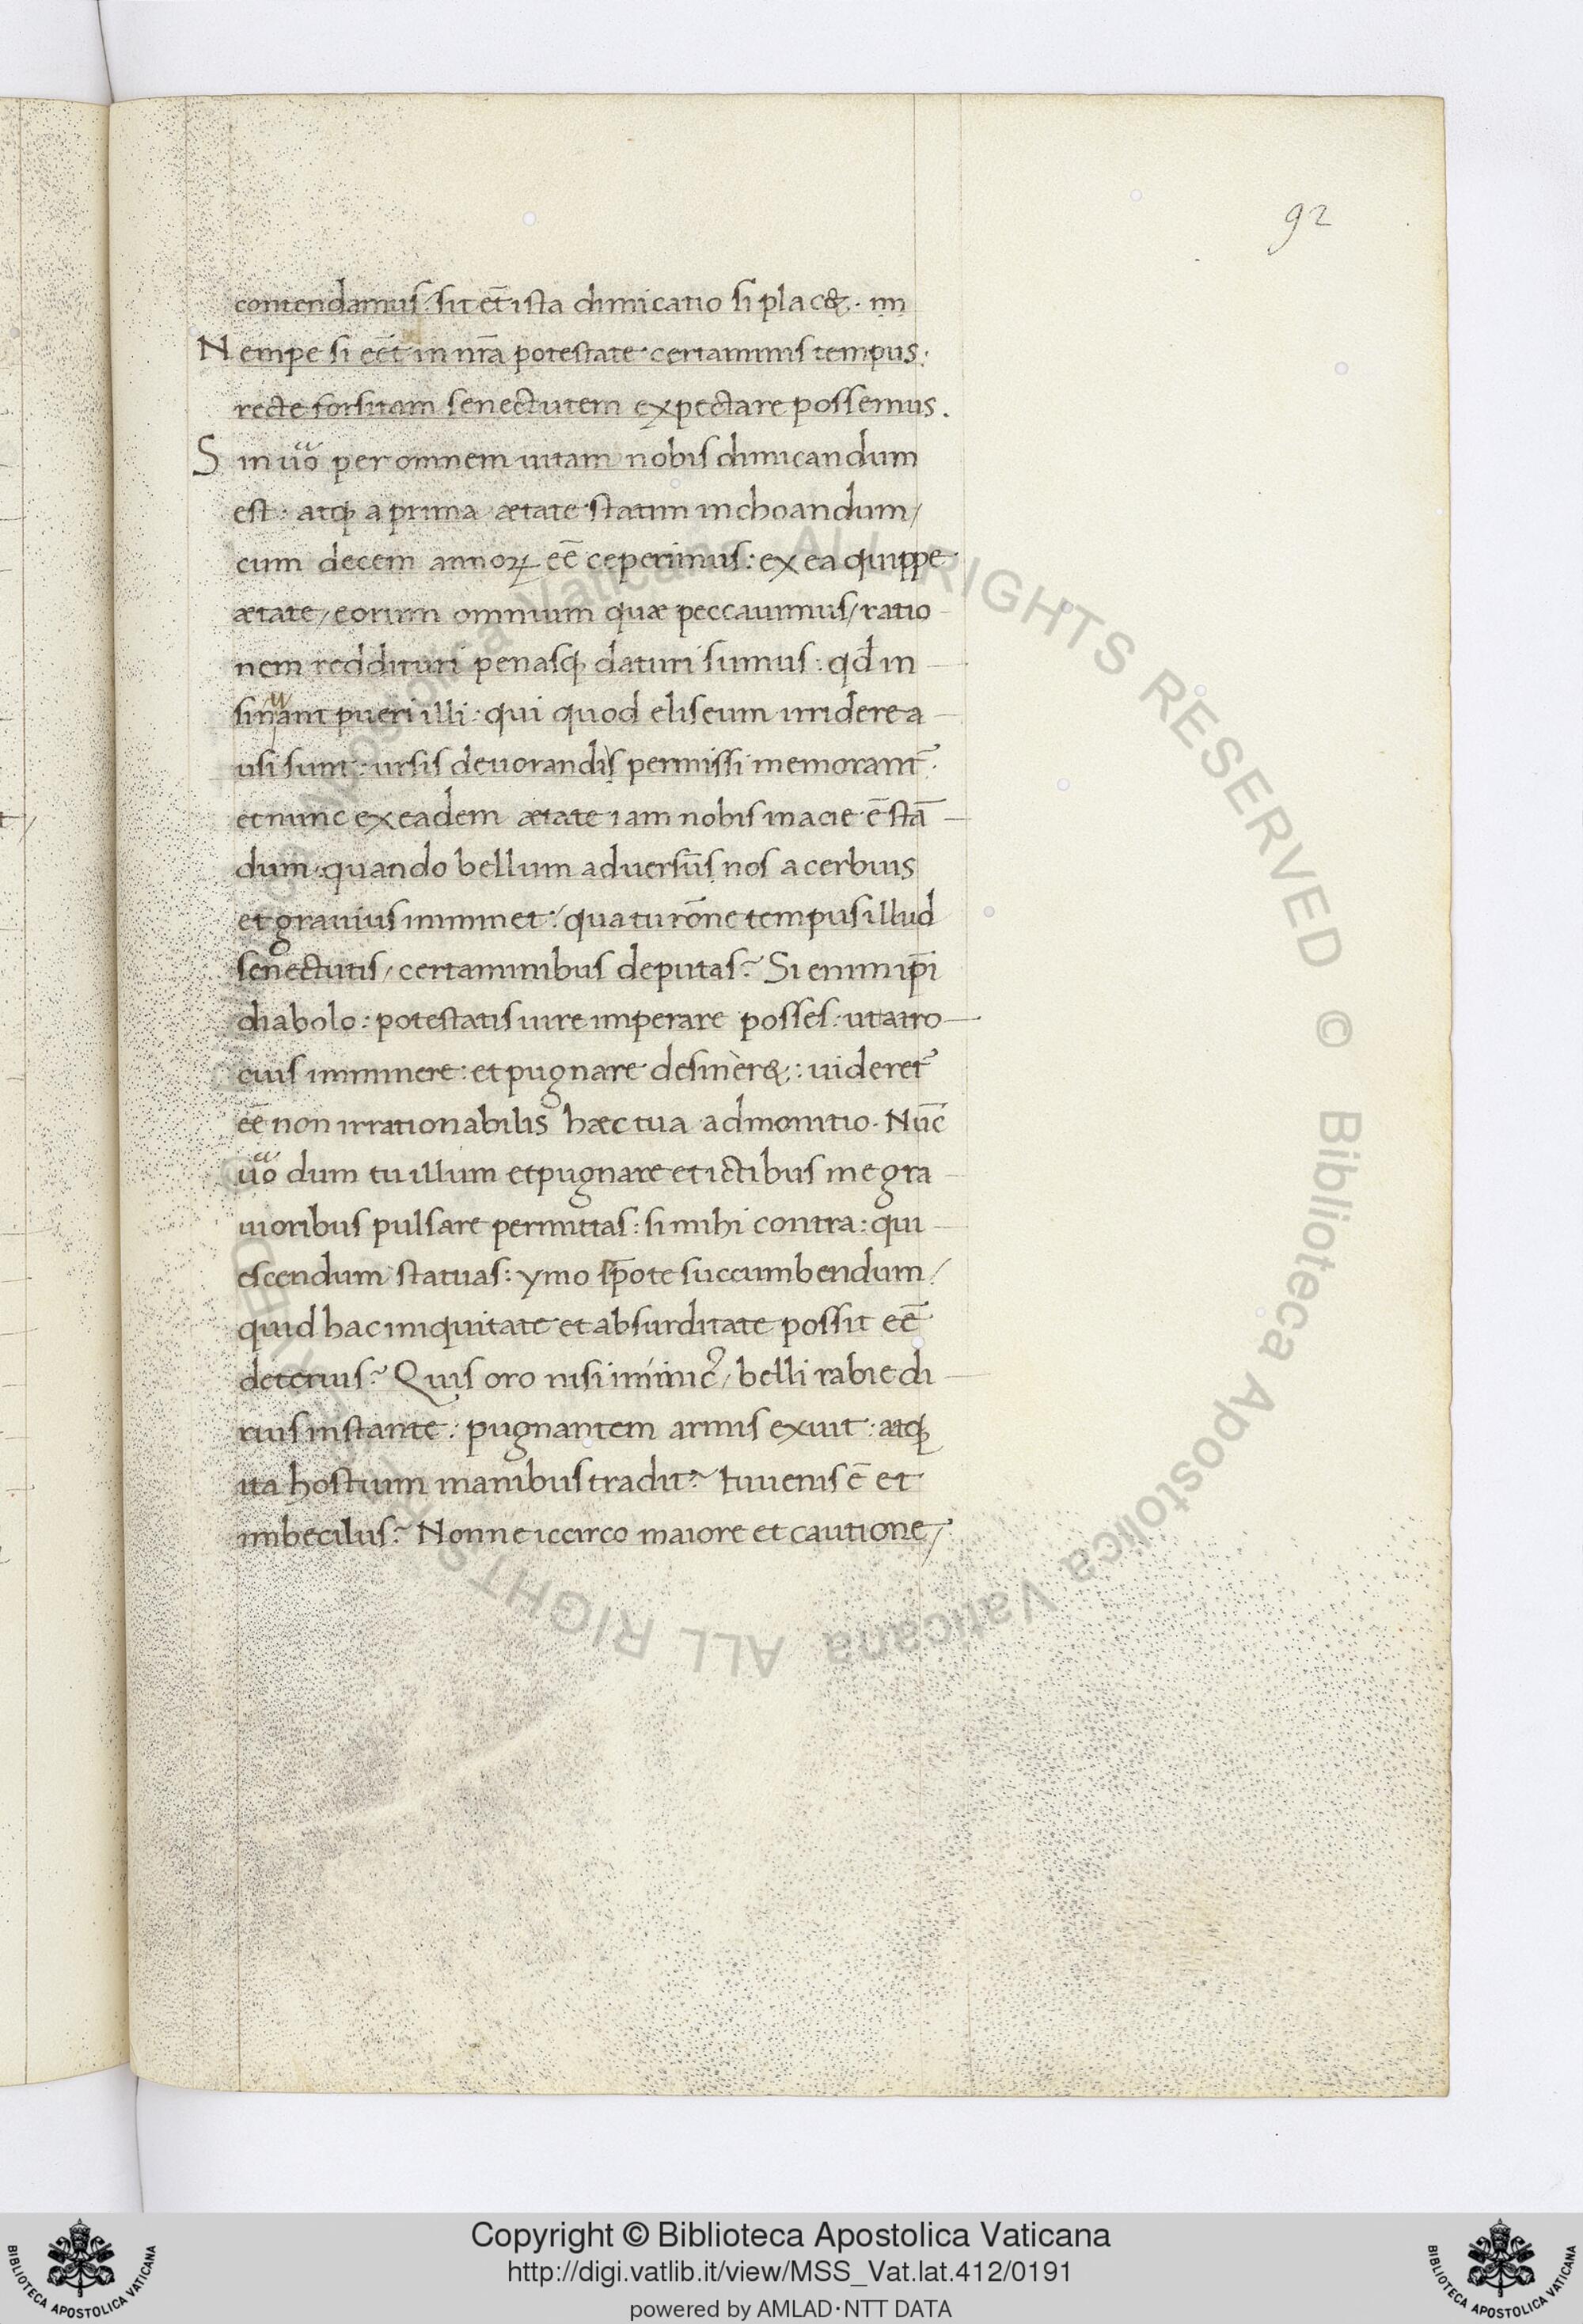 92
contendamus: sit et̄ ista dimicatio si plac&. m
Nempe si eēt in nr̄a potestate certaminis tempus:
recte forsitam senectutem expectare possemus.
Sin uo̎ per omnem uitam nobis dimicandum
est: atq; a prima ætate statim inchoandum/
cum decem annoꝝ eē ceperimus: ex ea quippe
ætate/ eorum omnium quæ peccauimus/ ratio
nem reddituri penasq; daturi sumus: qd̄ in
sinuant pueri illi: qui quod eliseum irridere a
usi sunt: ursis deuorandis permissi memorant᷑.
et nunc ex eadem ætate iam nobis in acie ē stā
dum: quando bellum aduersūs nos acerbius
et grauius imminet: qua tu rōne tempus illud
senectutis/ certaminibus deputas? Si enim ip̄i
diabolo: potestatis iure imperare posses: ut atro
cius imminere: et pugnare desiner&: uideret᷑
eē non irrationabilis hæc tua admonitio. Nūc
uo̎ dum tu illum et pugnare et ictibus me gra
uioribus pulsare permittas: si mihi contra: qui
escendum statuas: ymo sp̄ote succumbendum/
quid hac iniquitate et absurditate possit eē
deterius? Quis oro nisi inimicꝰ/ belli rabie di
rius instante: pugnantem armis exuit: atq;
ita hostium manibus tradit? Iuuenis ē et
imbecilus? Nonne iccirco maiore et cautione/
© Biblioteca Apostolica Vaticana ALL RIGHTS RESERVED
Copyright © Biblioteca Apostolica Vaticana
http://digi.vatlib.it/view/MSS_Vat.lat.412/0191
powered by AMLAD·NTT DATA
BIBLIOTECA APOSTOLICA VATICANA
BIBLIOTECA APOSTOLICA VATICANA